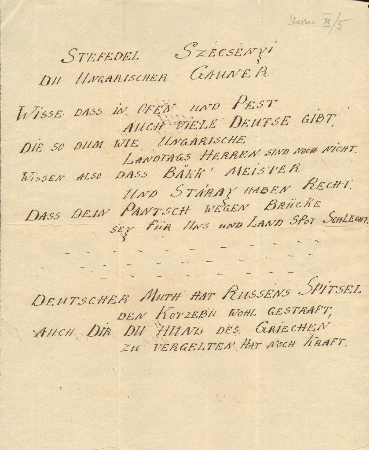 Stefedel Szecsényi
Du Ungarischer Gauner
Wisse dass in Ofen und Pest
auch viele Deutse gibt
Die so dum wie Ungarische
Landtags Herren sind noch nicht.
Wissen also dass Bäkk' Meister
und Stáray haben Recht.
Dass dein Pantsch wegen Brücke
sey für uns und Land Spot schlecht.
Deutscher Muth hat Russens Spitsel
den Kotzebu wohl gestraft,
Auch Dir Du Hund des Griechen
zu vergelten hat noch Kraft.